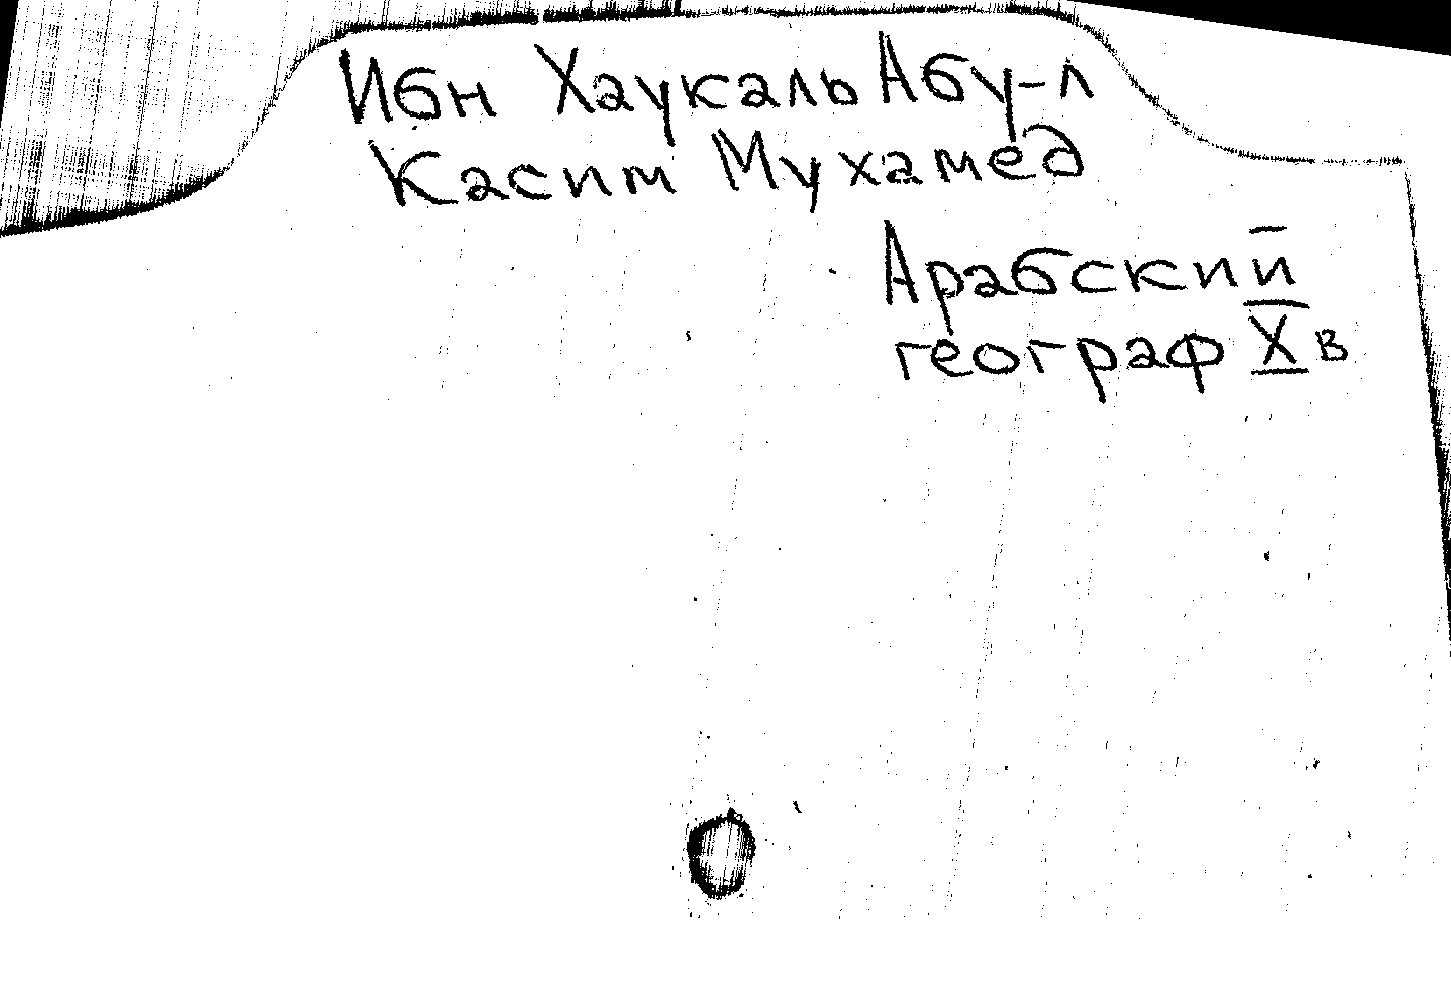 Ибн Хаукаль Абу-л
Касим Мухамед
Арабский
географ X в